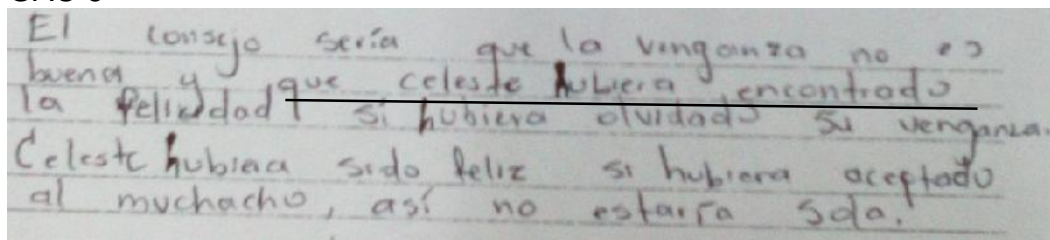 El consejo sería que la venganza no es
buena y que celeste hubiera encontrado
la felicidad si hubiera olvidado su venganza.
Celeste hubiera sido feliz si hubiera aceptado
al muchacho, así no estaría sola.